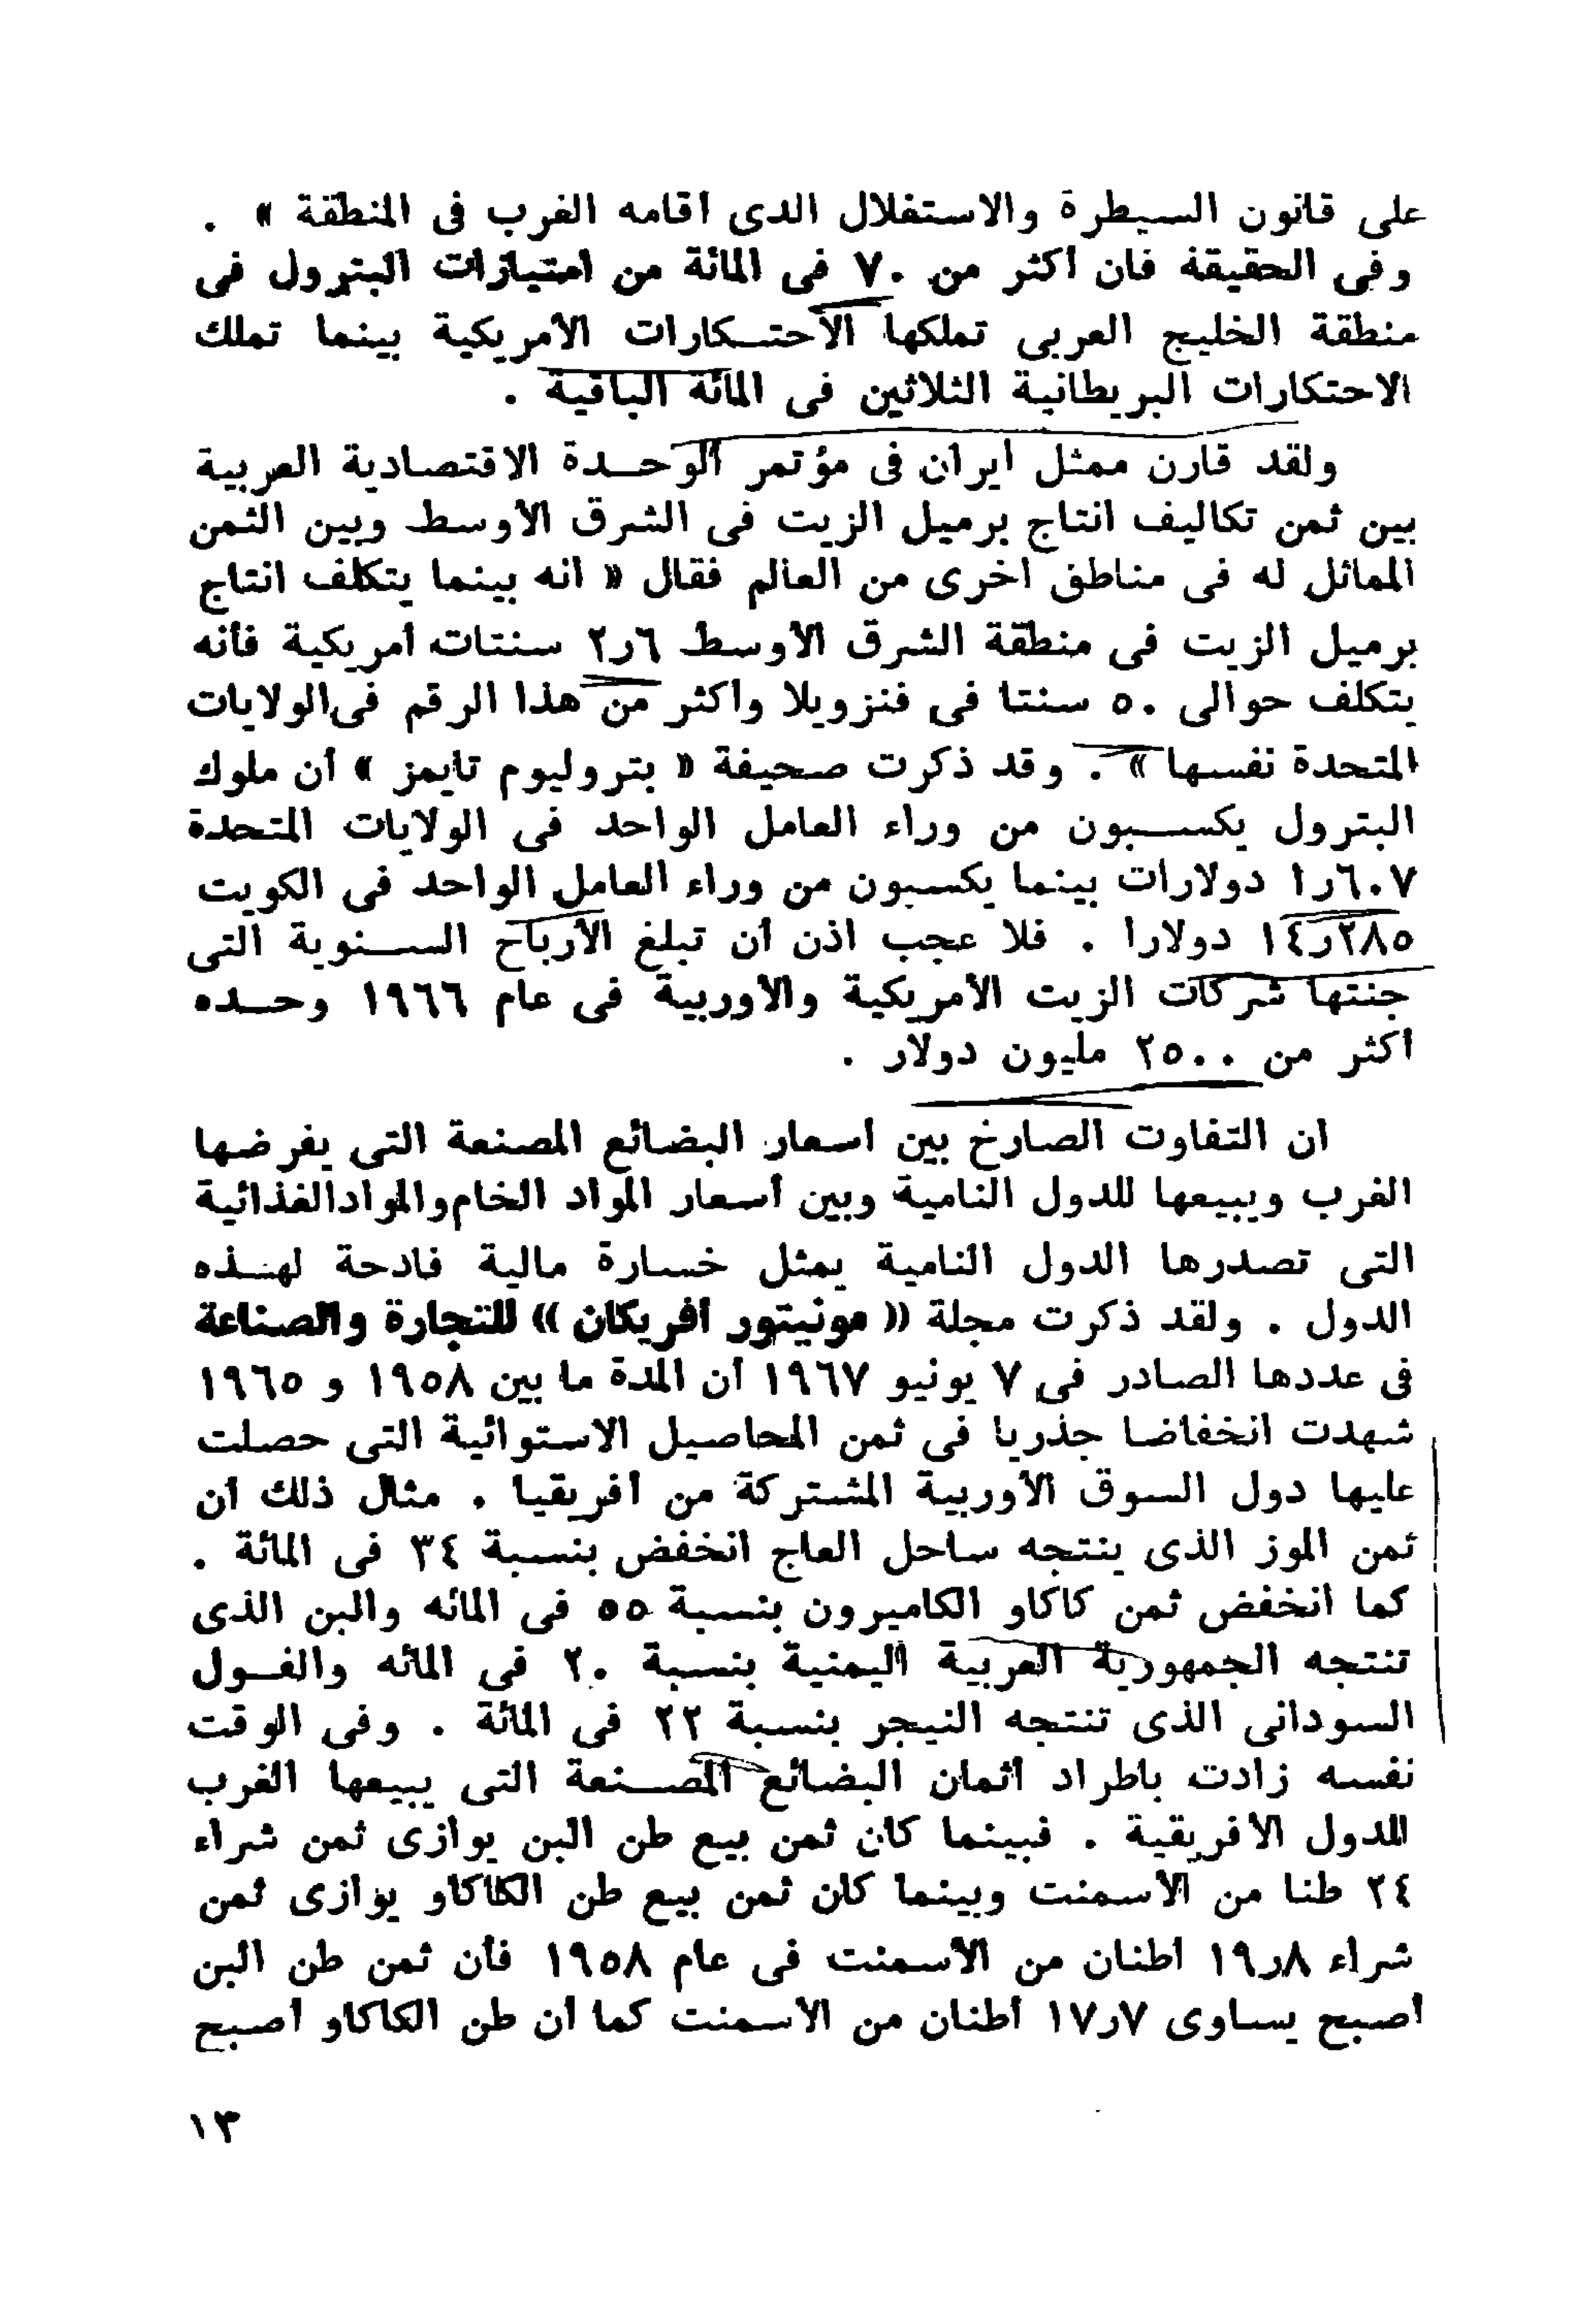 على قانون السيطرة والاستغلال الذى أقامه الغرب فى المنطقة » .
وفى الحقيقة فان أكثر من ٧٠ فى المائة من امتيازات البترول فى
منطقة الخليج العربى تملكها الأحتكارات الأمريكية بينما تملك
الاحتكارات البريطانية الثلاثين فى المائة الباقية .
ولقد قارن ممثل ايران فى مؤتمر الوحدة الاقتصادية العربية
بين ثمن تكاليف انتاج برميل الزيت فى الشرق الأوسط وبين الثمن
المماثل له فى مناطق أخرى من العالم فقال « انه بينما يتكلف انتاج
برميل الزيت فى منطقة الشرق الأوسط ٦ر٢ سنتات أمريكية فأنه
يتكلف حوالى ٥٠ سنتا فى فنزويلا وأكثر من هذا الرقم فى الولايات
المتحدة نفسها » . وقد ذكرت صحيفة « بتروليوم تايمز » أن ملوك
البترول يكسبون من وراء العامل الواحد فى الولايات المتحدة
٦٠٧ر١ دولارات بينما يكسبون من وراء العامل الواحد فى الكويت
٢٨٥ر١٤ دولارا . فلا عجب اذن أن تبلغ الأرباح السنوية التى
جنتها شركات الزيت الأمريكية والأوربية فى عام ١٩٦٦ وحده
أكثر من ٢٥٠٠ مليون دولار .
ان التفاوت الصارخ بين أسعار البضائع المصنعة التى يفرضها
الغرب ويبيعها للدول النامية وبين أسعار المواد الخام والمواد الغذائية
التى تصدرها الدول النامية يمثل خسارة مالية فادحة لهذه
الدول . ولقد ذكرت مجلة « مونيتور أفريكان » للتجارة والصناعة
فى عددها الصادر فى ٧ يونيو ١٩٦٧ أن المدة ما بين ١٩٥٨ و ١٩٦٥
شهدت انخفاضا جذريا فى ثمن المحاصيل الاستوائية التى حصلت
عليها دول السوق الأوربية المشتركة من أفريقيا . مثال ذلك أن
ثمن الموز الذى ينتجه ساحل العاج انخفض بنسبة ٣٤ فى المائة .
كما انخفض ثمن كاكاو الكاميرون بنسبة ٥٥ فى المائه والبن الذى
تنتجه الجمهورية العربية اليمنية بنسبة ٢٠ فى المائه والفول
السودانى الذى تنتجه النيجر بنسبة ٢٢ فى المائة . وفى الوقت
نفسه زادت باطراد أثمان البضائع المصنعة التى يبيعها الغرب
للدول الافريقية . فبينما كان ثمن بيع طن البن يوازى ثمن شراء
٢٤ طنا من الأسمنت وبينما كان ثمن بيع طن الكاكاو يوازى ثمن
شراء ٨ر١٩ أطنان من الأسمنت فى عام ١٩٥٨ فأن ثمن طن البن
أصبح يساوى ٧ر١٧ أطنان من الأسمنت كما أن طن الكاكاو أصبح
١٣